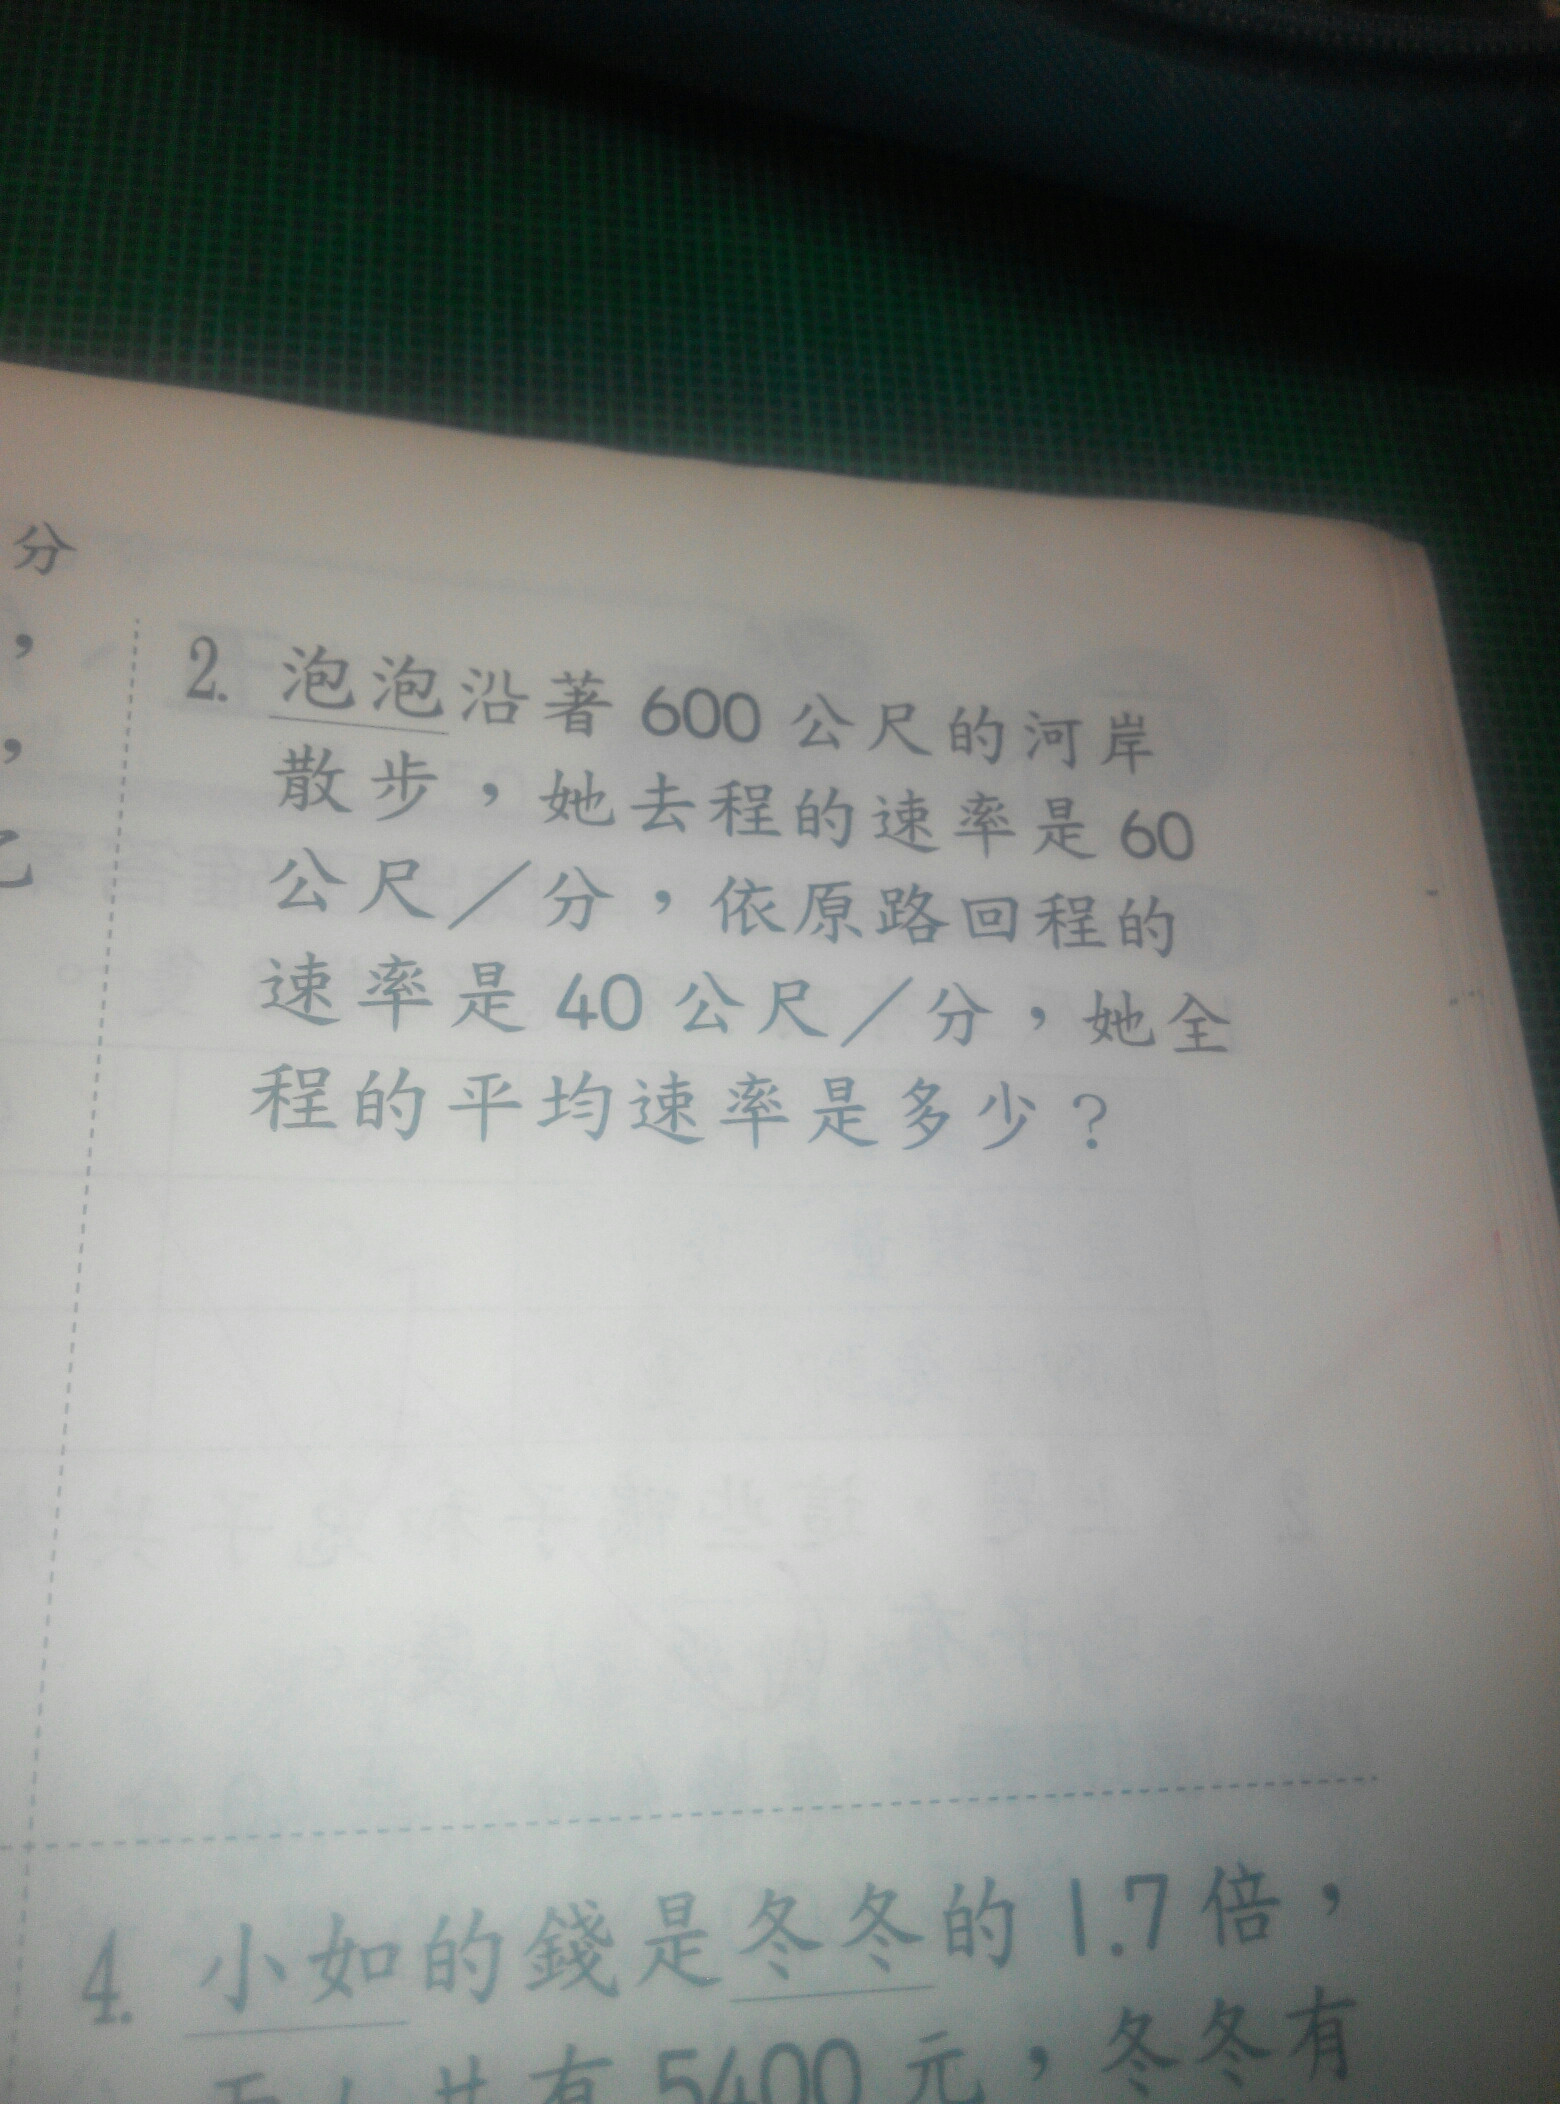 分
，
，
2. 泡泡沿著 600 公尺的河岸
散步，她去程的速率是 60
公尺／分，依原路回程的
速率是 40 公尺／分，她全
程的平均速率是多少？
4. 小如的錢是冬冬的 1.7 倍，
共有 5400 元，冬冬有